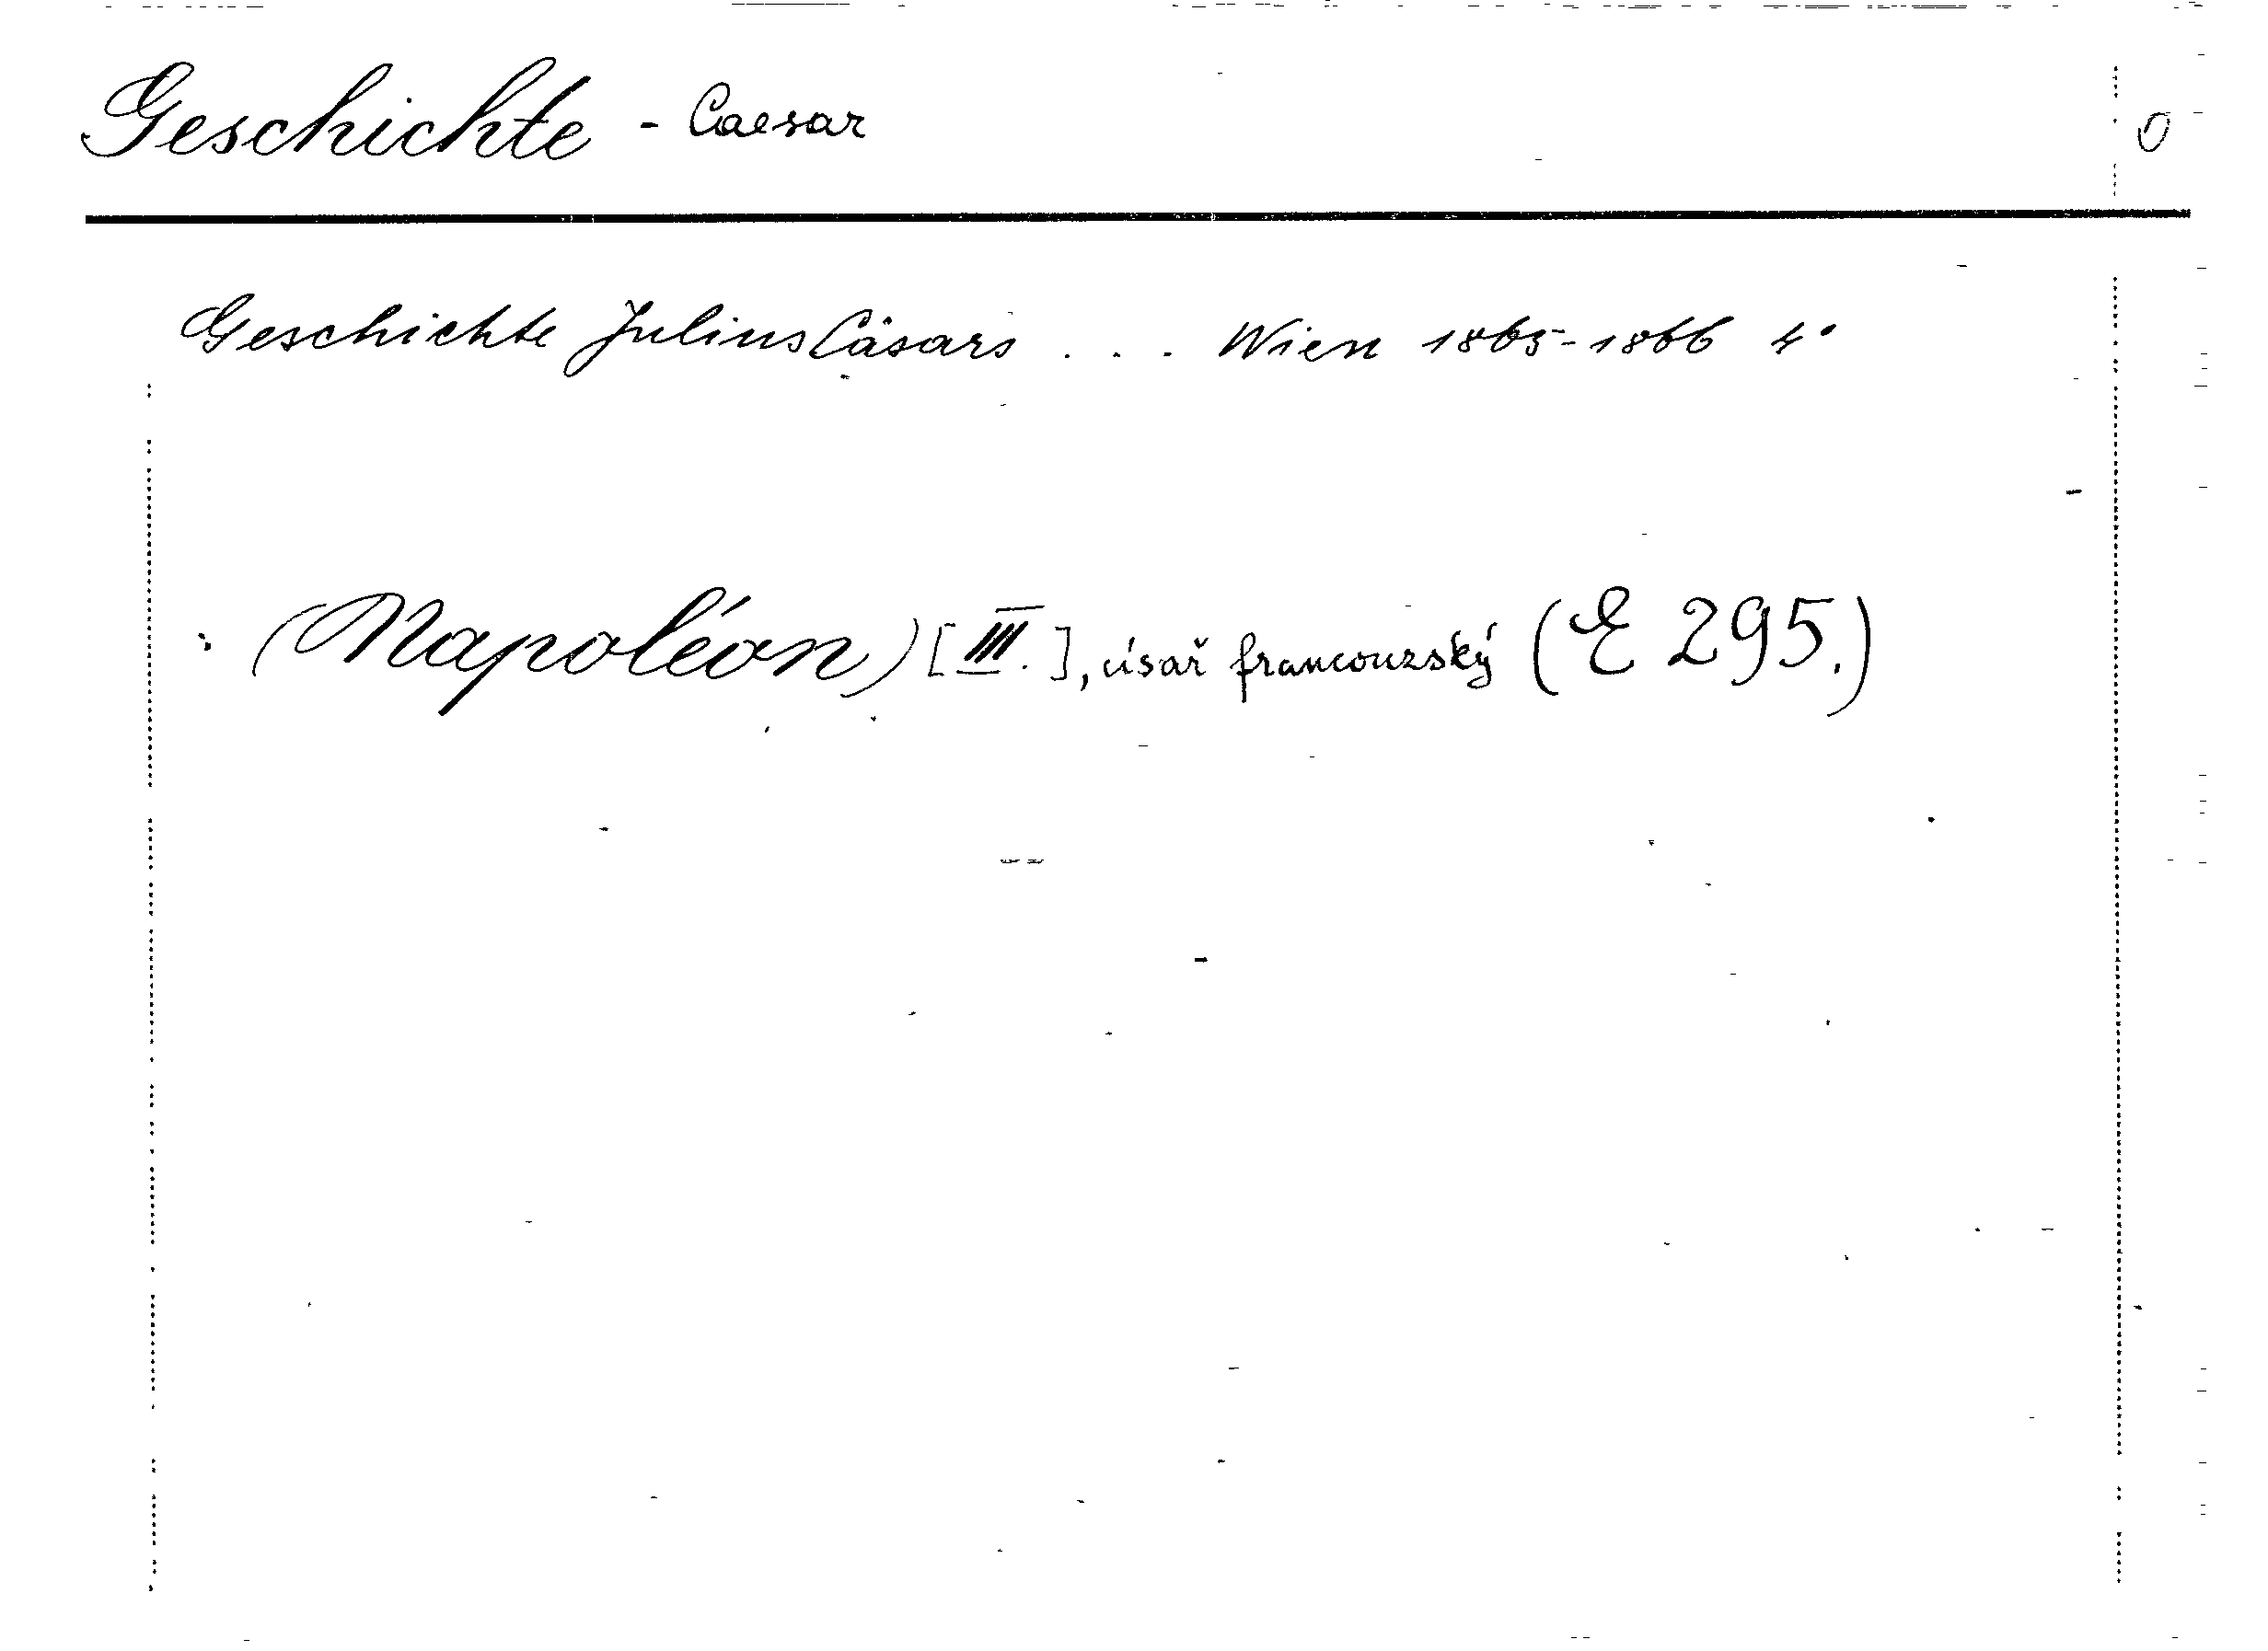 Geschichte - Caesar 0
Geschichte Julius Cäsars . . . Wien 1865-1866 4°
: (Napoléon) [III.], císař francouzský (E 295.)